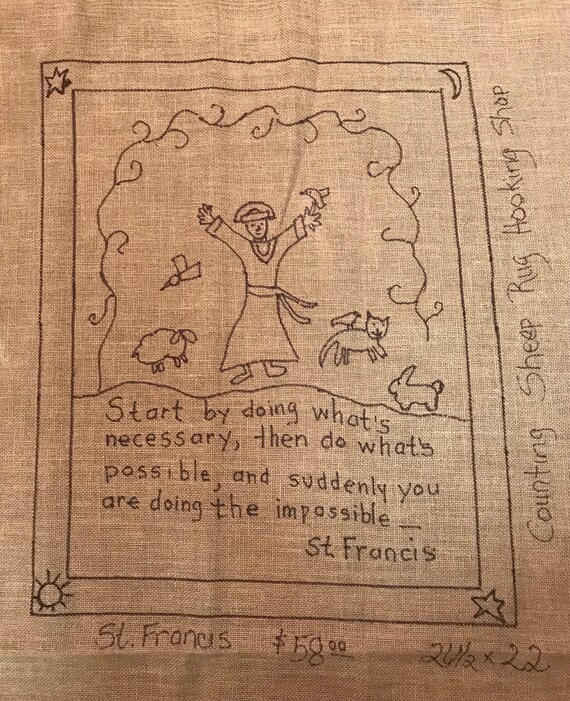 Start by doing what's
necessary, then do what's
possible, and suddenly you
are doing the impossible _
St. Francis
St. Francis $58.00 26 1/2 x 22
Counting Sheep Rug Hooking Shop